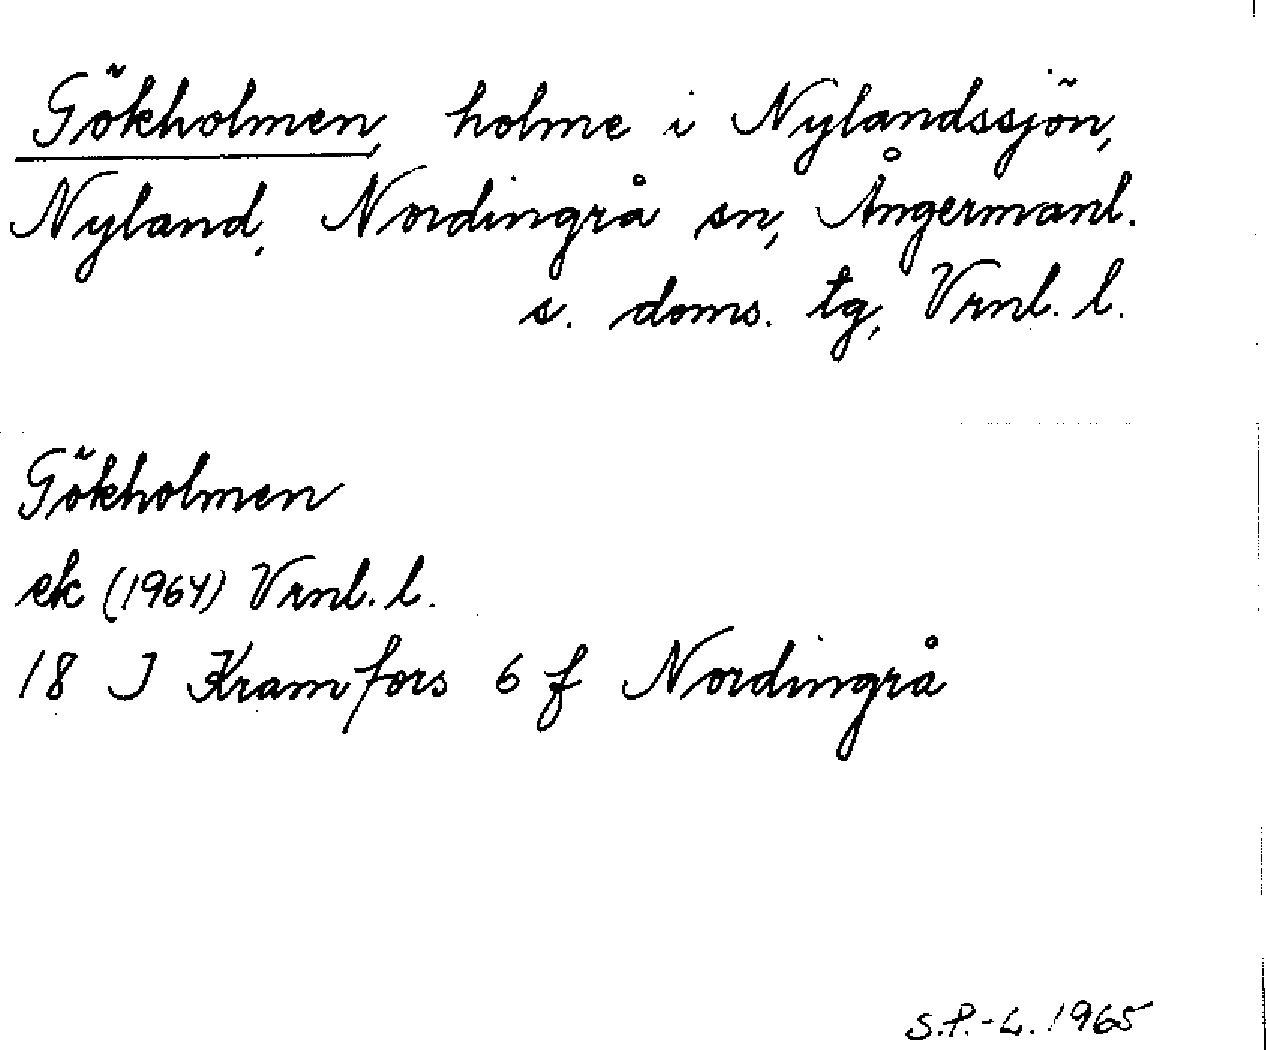 Gökholmen, holme i Nylandssjön,
Nyland, Nordingrå sn, Ångermanl.
s. doms. tg, Vrnl. l.
Gökholmen
ek (1964) Vrnl. l.
18 J Kramfors 6 f Nordingrå
S.P.-L. 1965